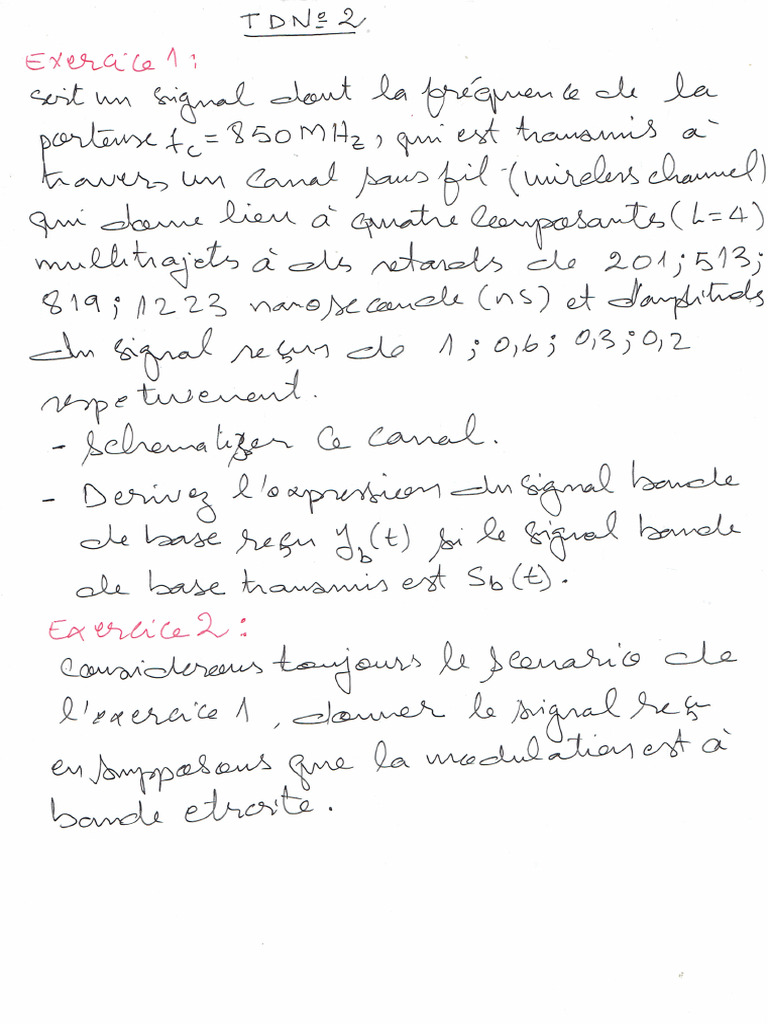 TDNº2
Exercice 1:
soit un signal dont la fréquence de la
porteuse fc = 850 MHz, qui est transmis à
travers un canal sans fil (wireless channel)
qui donne lieu à quatre composantes (L=4)
multitrajets à des retards de 201; 513;
819; 1223 nanoseconde (ns) et d'amplitudes
du signal reçus de 1; 0,6; 0,3; 0,2
respetivement.
- Schematizer ce canal.
- Derivez l'expression du signal bande
de base reçu yb(t) si le signal bande
de base transmis est Sb(t).
Exercice 2:
considerons toujours le scenario de
l'exercice 1, donner le signal reç
en supposons que la modulation est à
bande etroite.